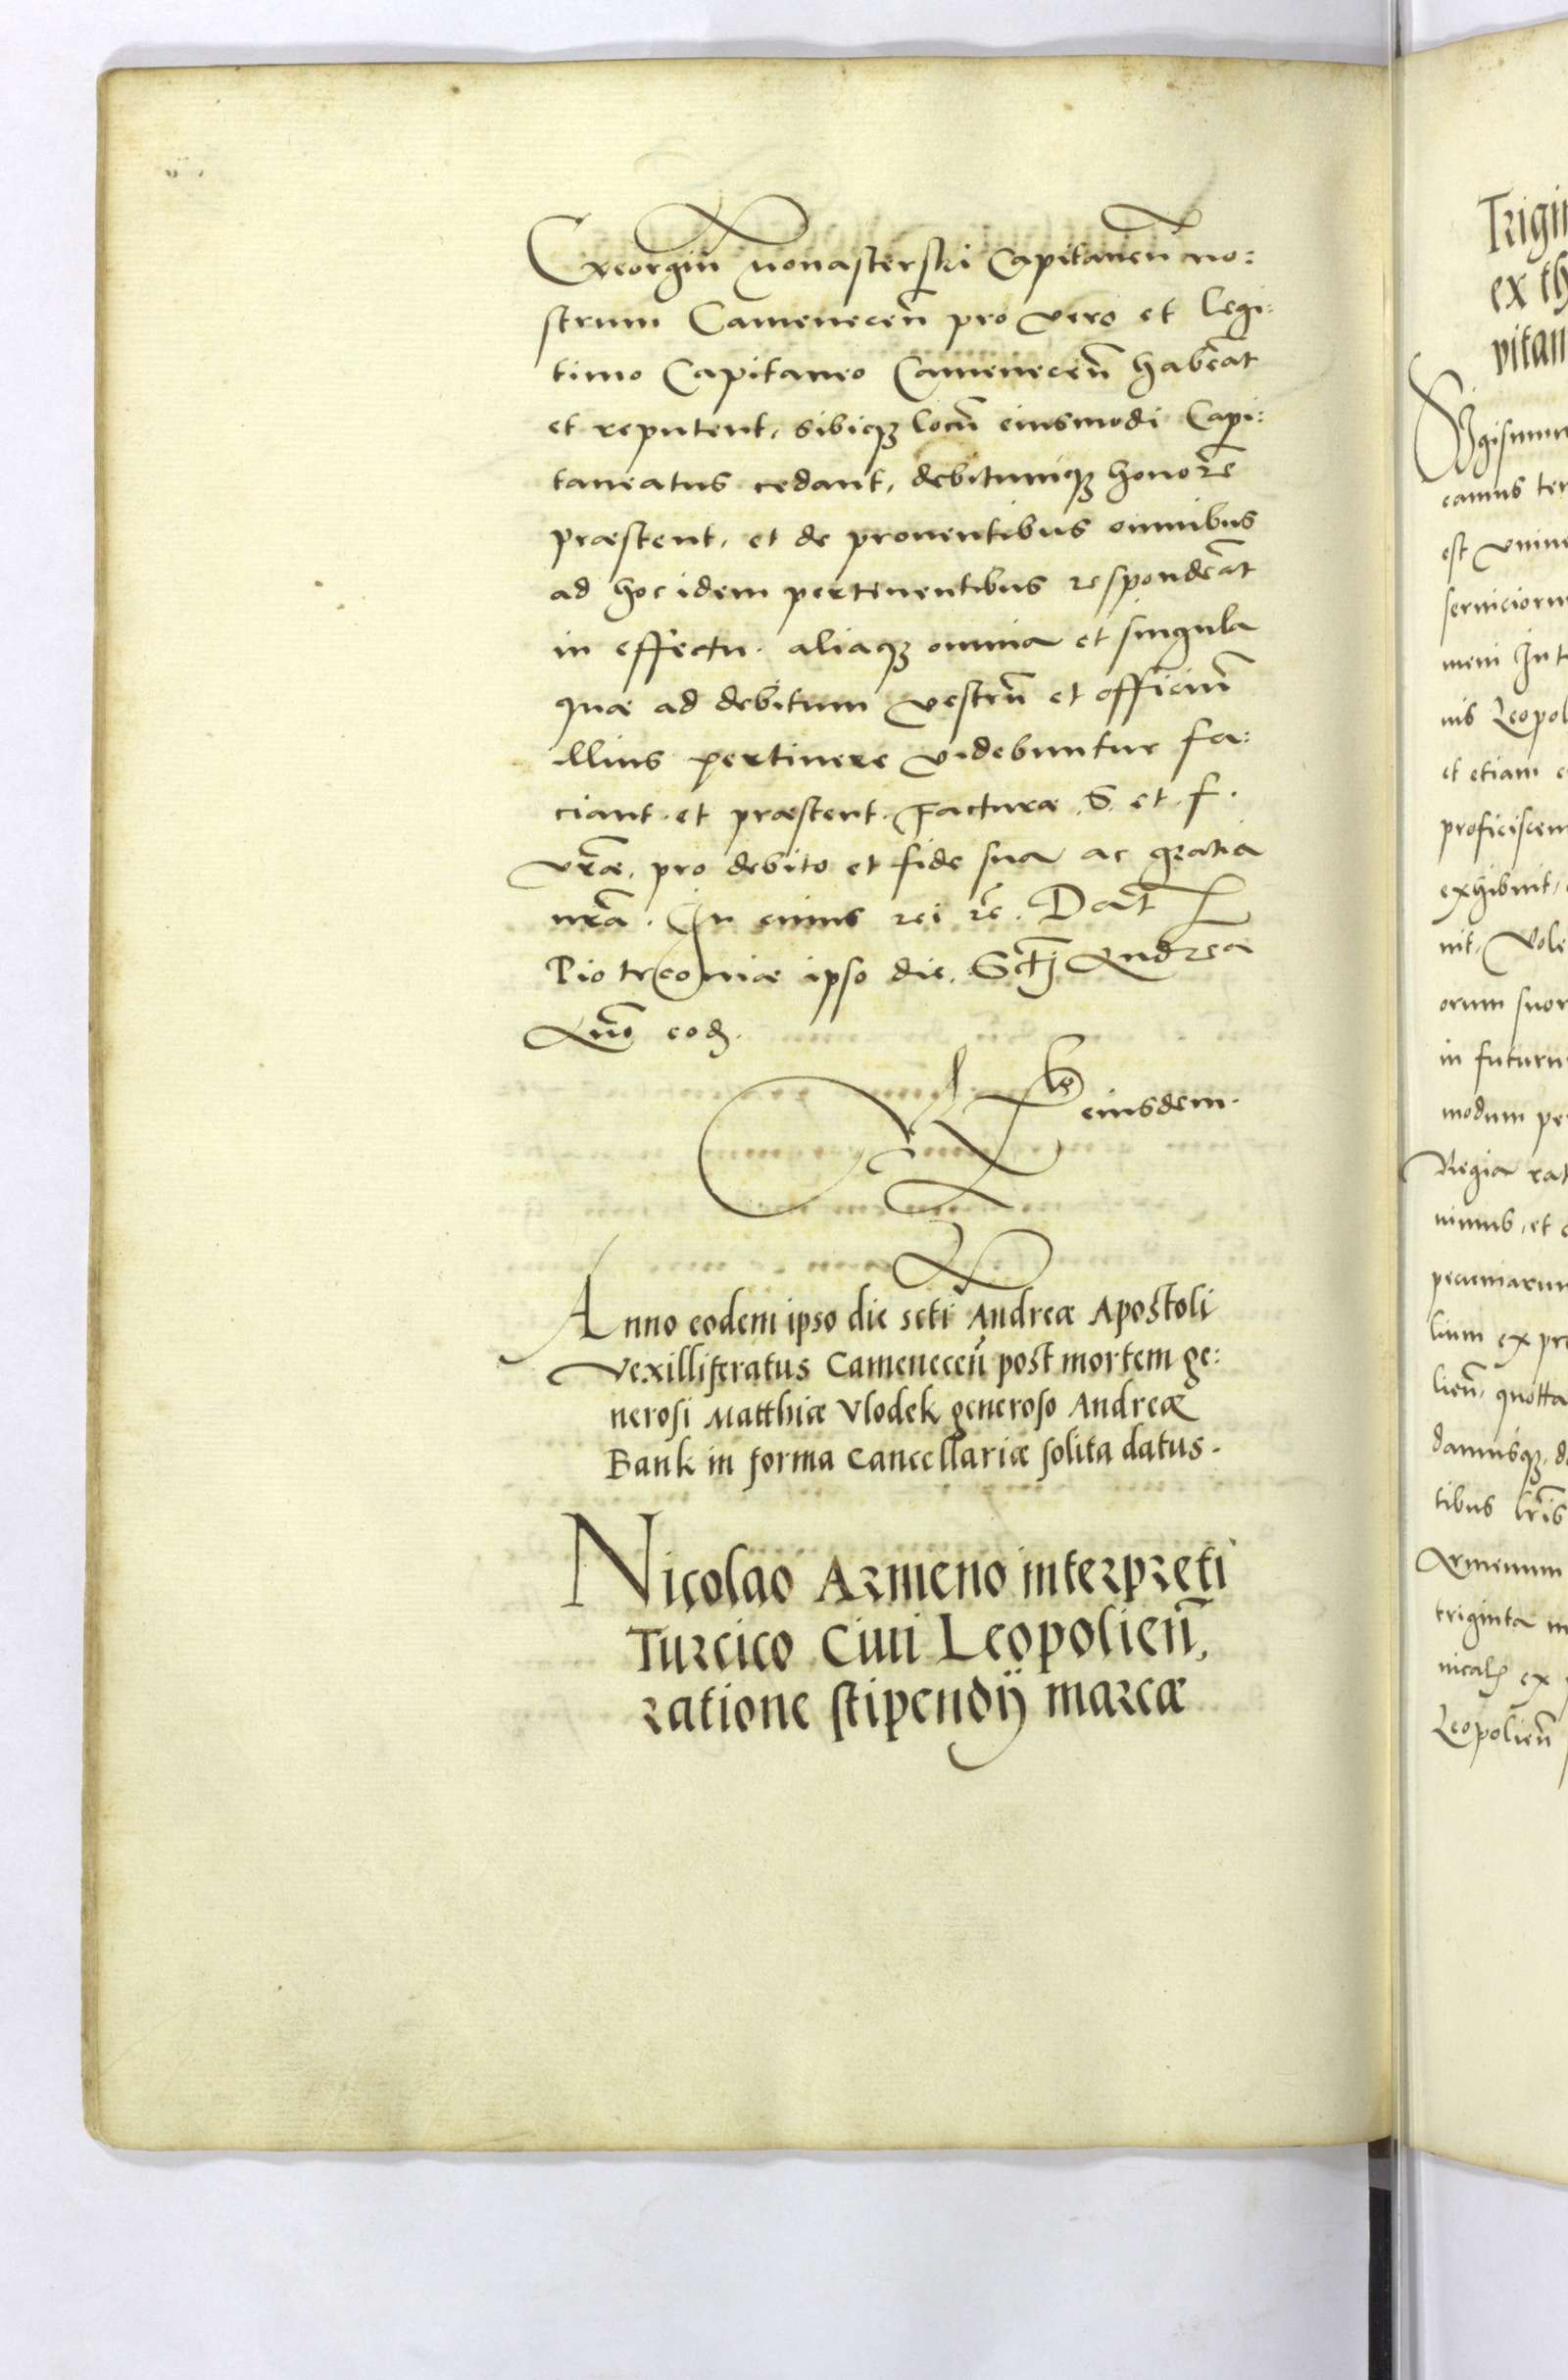 Georgiū Monasterski Capitaneū no:
strum Camenecen̄ pro vero et legi:
timo Capitaneo Camenecen̄ habeāt
et reputent, sibiqȝ locū eiusmodi Capi:
taneatus cedant, debitumqȝ honorē
præstent, et de prouentibus omnibus
ad hoc idem pertinentibus respondeāt
in effectu. aliaqȝ omnia et singula
quæ ad debitum vestrū et officiū
illius pertinere videbuntur fa:
ciant et præstent. Facturæ S. et f.
vr̄æ, pro debito et fide sua ac gratia
nr̄a. In cuius rei rē. Dat̄
Piotrcouiæ ipso die Sctj Andreæ
An̄o eodȝ.
eiusdem.
Anno eodem ipso die scti Andreæ Apostoli
Vexilliferatus Camenecen̄ post mortem ge:
nerosi Matthiæ Vlodek generoso Andreæ
Bank in forma Cancellariæ solita datus.
Nicolao Armeno interpreti
Turcico Ciui Leopolien̄,
ratione stipendij marcæ
Trigin
ex th
pitan
Sigismun
camus ten
est vniue
seruiciorum
meni Int
nis Leopol
et etiam e
proficiscen
exhibuit,
nit, Vole
orum suor
in futuru
modum pe
Regia rat
nimus, et
pecuniarum
lium ex pro
lien̄, quotta
damusqȝ, d
tibus lr̄is
Armenum
triginta m
ex
Leopolien̄